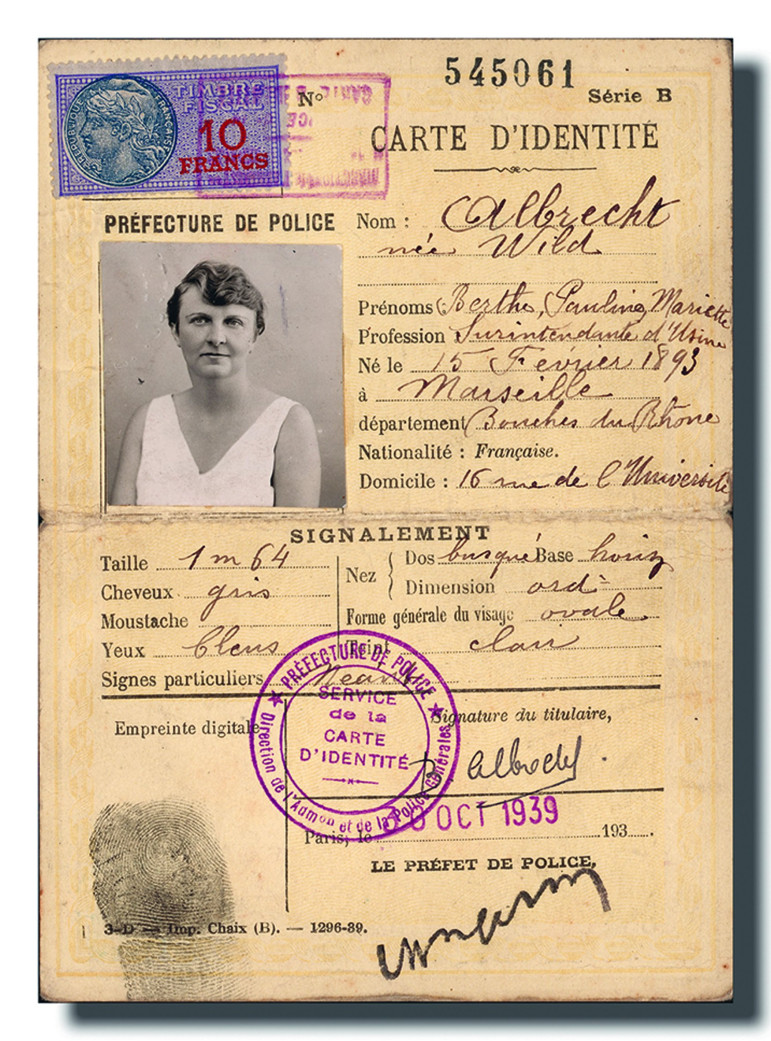 545061
TIMBRE
FISCAL
10
FRANCS
RÉPUBLIQUE FRANÇAISE
N° Série B
CARTE D'IDENTITÉ
PRÉFECTURE DE POLICE
Nom : Albrecht
née Wild
Prénoms Berthe, Pauline, Mariette
Profession Surintendante d'Usine
Né le 15 Fevrier 1893
à Marseille
département Bouches du Rhône
Nationalité : Française.
Domicile : 16 rue de l'Université
SIGNALEMENT
Taille 1m64
Cheveux gris
Moustache
Yeux bleus
Signes particuliers Neant
Nez Dos busqué Base horiz
Dimension ord
Forme générale du visage ovale
Teint clair
PRÉFECTURE DE POLICE
SERVICE
de la
CARTE
D'IDENTITÉ
Direction de l'Admon et de la Police Générales
Empreinte digitale
Signature du titulaire,
Albrecht
Paris, le 193
OCT 1939
LE PRÉFET DE POLICE,
3-D — Imp. Chaix (B). — 1296-39.